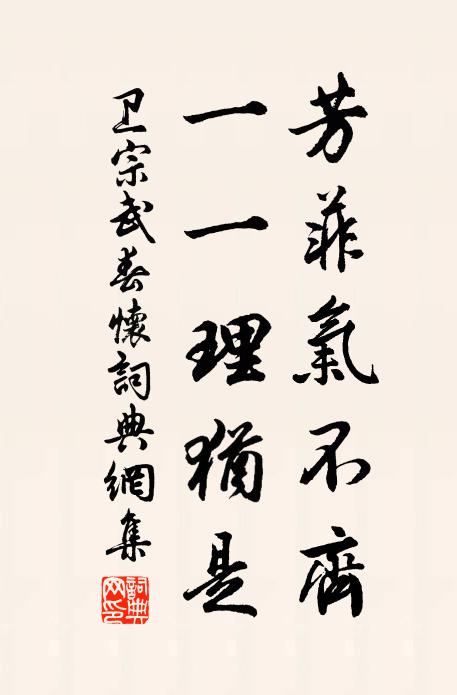 芳菲氣不齊
一一理猶是
卫宗武春懷詞典網集
詞典网印